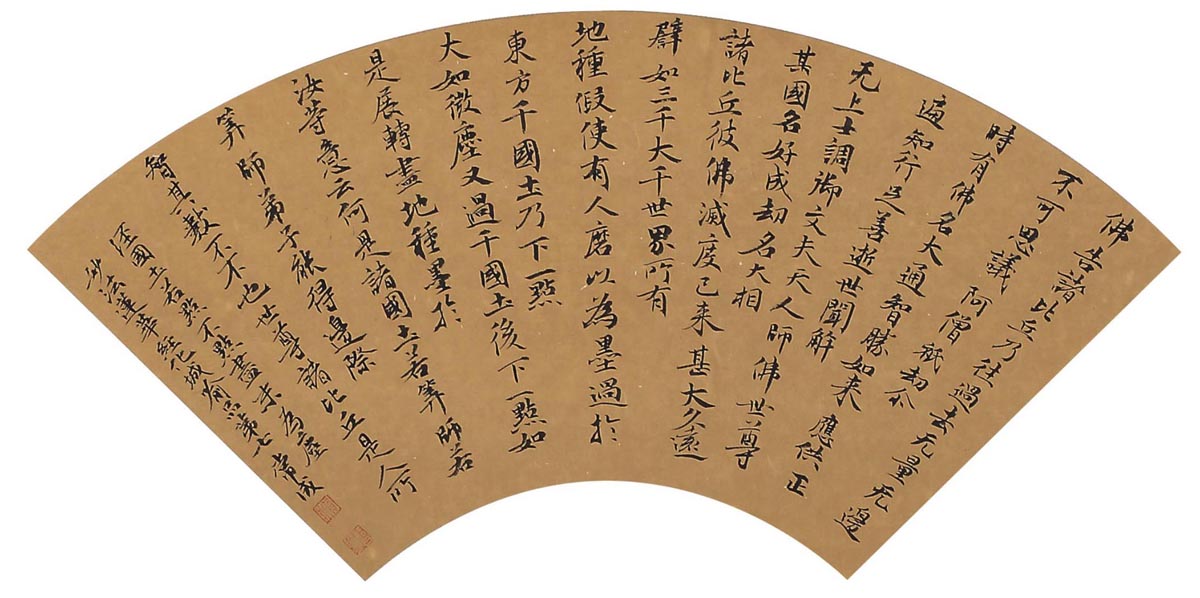 佛告諸比丘乃往過去无量无邊
不可思議阿僧祇劫尒
時有佛名大通智勝如来應供正
遍知行足善逝世聞解
无上士調御丈夫天人師佛世尊
其國名好成劫名大相
諸比丘彼佛滅度已来甚大久遠
譬如三千大千世界所有
地種假使有人磨以為墨過於
東方千國土乃下一點
大如微塵又過千國土後下一點如
是展轉盡地種墨於
汝等意云何是諸國土若筭師若
筭師弟子能得邊際
智其數不不也世尊諸比丘是人所
經國土若點不點盡末為塵
妙法蓮華經化城喻品第七